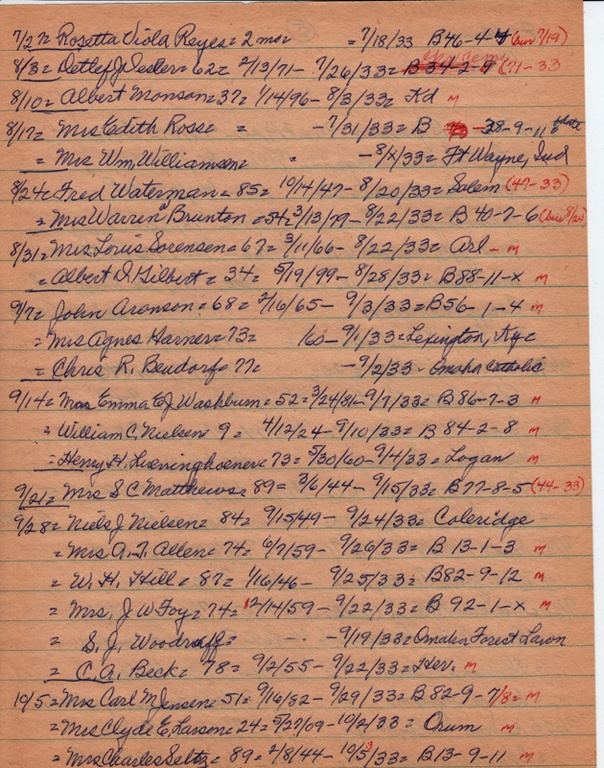 7/27= Rosetta Viola Reyes= 2 mos = 7/18/33 B46-4-4 (bur 7/19)
8/3= Detlef J. = 62= 2/13/71- 7/26/33= B 34-2-9 (71-33
8/10= Albert Monson= 37= 1/14/96- 8/3/33= Kd m
8/17= Mrs Edith Ross= = -7/31/33= B 38-9-11=
= Mrs Wm, Williamson= = -8/x/33= Ft Wayne, Ind
8/24= Fred Waterman= 85= 10/14/47- 8/20/33= Salem (47-33)
= Mrs Warren Brunton =54= 3/13/79- 8/22/33= B 40-7-6 (bur 8/24)
8/31= Mrs Louis Sorensen= 67= 3/11/66- 8/22/33= Arl- m
= Albert D. Hilbert= 34= 5/19/99- 8/28/33= B88-11-x m
9/7= John Aronson= 68= 2/16/65- 9/3/33= B56-1-4 m
= Mrs Agnes Harner= 73= 160- 9/1/33= Lexington, Ky=
= Chris R. Beudorf= 77= -9/2/33- Omaha Catholic
9/14= Mrs Emma E J Washburn= 52= 3/24/81- 9/7/33= B86-7-3 m
= William C. Nielsen= 9= 4/12/24- 9/10/33= B 84-2-8 m
= Henry H. = 73= 5/30/60- 9/4/33= Logan m
9/21= Mrs S C Matthews= 89= 3/6/44- 9/15/33= B77-8-5 (44-33)
9/28= Niels J Nielsen= 84= 9/15/49- 9/24/33= Coleridge
= Mrs A. T. Allen= 74= 6/7/59- 9/26/33= B 13-1-3 m
= W. H. Hill= 87= 1/16/46- 9/25/33= B82-9-12 m
= Mrs. J W Foy= 74= 12/14/59- 9/22/33= B 92-1-x m
= S. J. Woodruff= - - 9/19/33= Omaha Forest Lawn
= C. A. Beck= 78= 9/2/55- 9/22/33= Her. m
10/5= Mrs Carl M Jensen= 51= 9/16/82- 9/29/33= B82-9-7/8= m
= Mrs Clyde E. Larson= 24= 5/27/09- 10/2/33= Orum m
= Mrs Charles Seltz= 89= 2/8/44- 10/3/33= B13-9-11 m